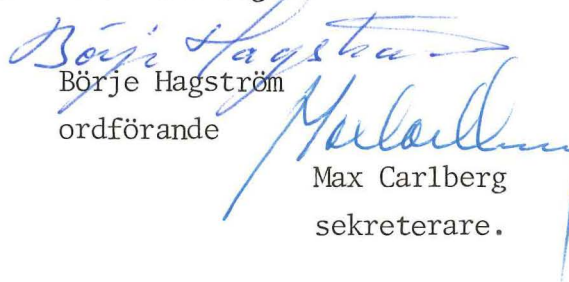 Börje Hagström
Börje Hagström
ordförande
Max Carlberg
sekreterare.